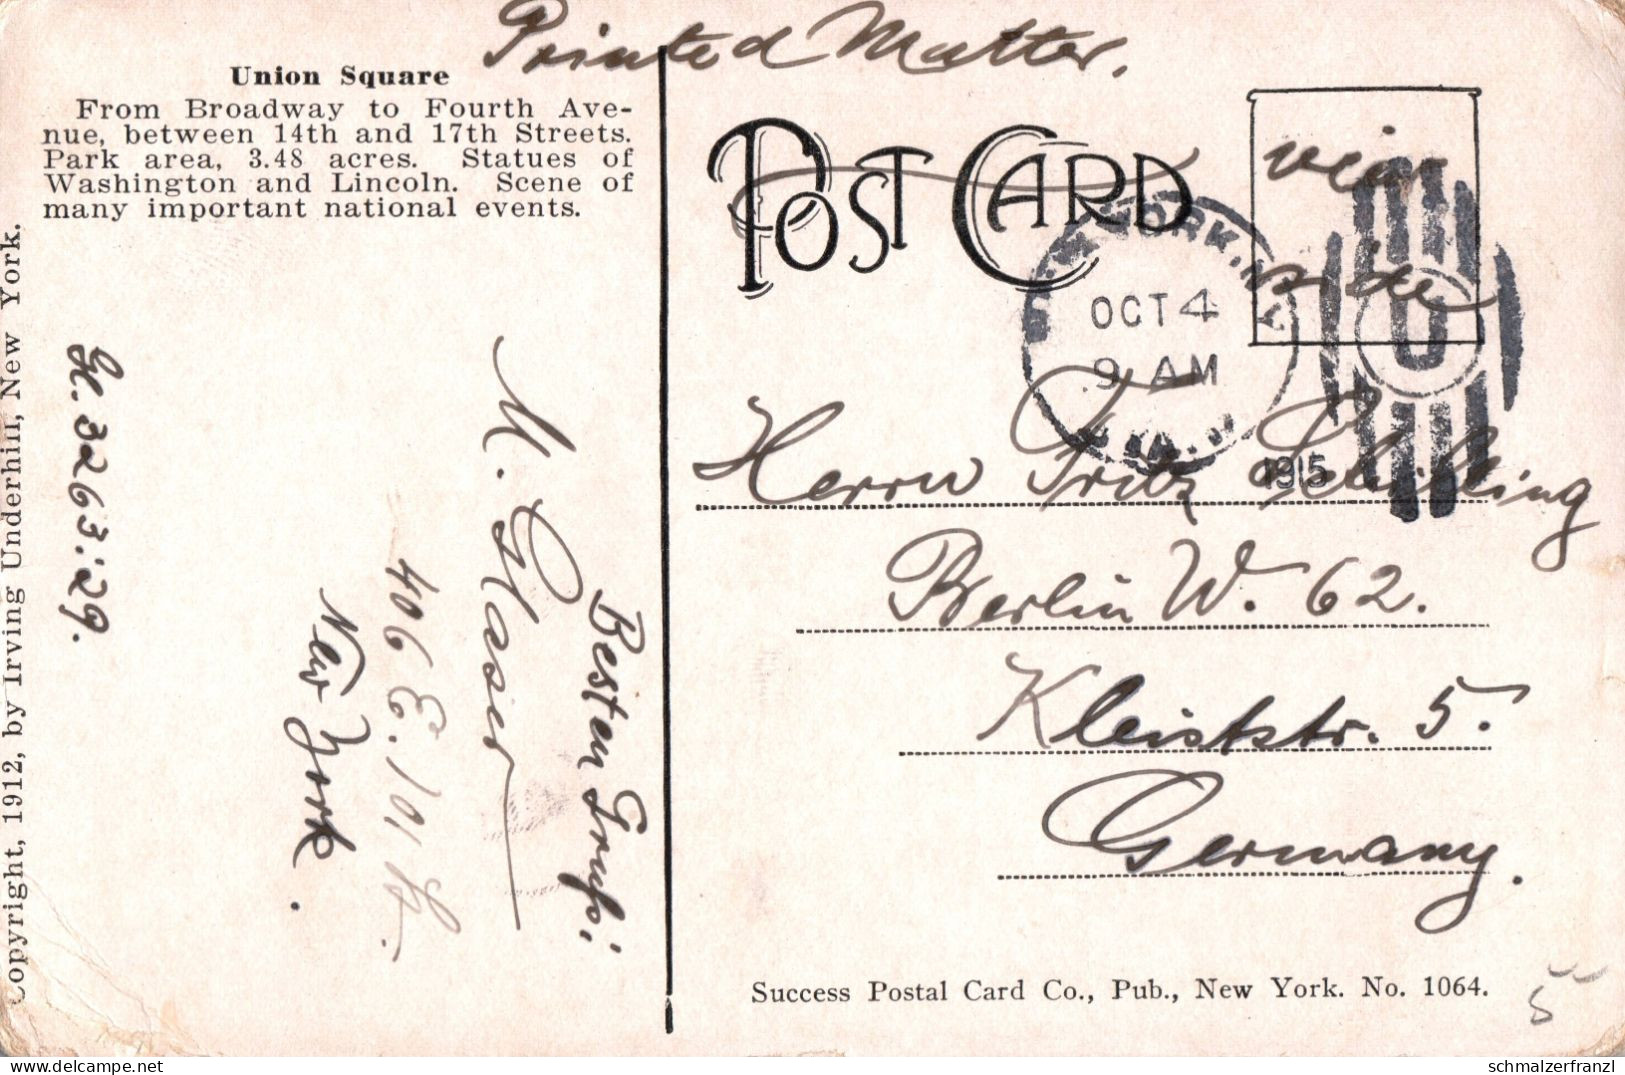 Printed Matter.
Union Square
From Broadway to Fourth Ave-
nue, between 14th and 17th Streets.
Park area, 3.48 acres. Statues of
Washington and Lincoln. Scene of
many important national events.
Copyright, 1912, by Irving Underhill, New York.
3263:29.
Besten Gruß:
M. Glaser
406 E. 101 St.
New York.
POST CARD
via
side
NEW YORK, N.Y.
OCT 4
9 AM
1915
U
Herrn Fritz Schilling
Berlin W. 62.
Kleiststr. 5.
Germany.
Success Postal Card Co., Pub., New York. No. 1064.
5
schmalzerfranzl